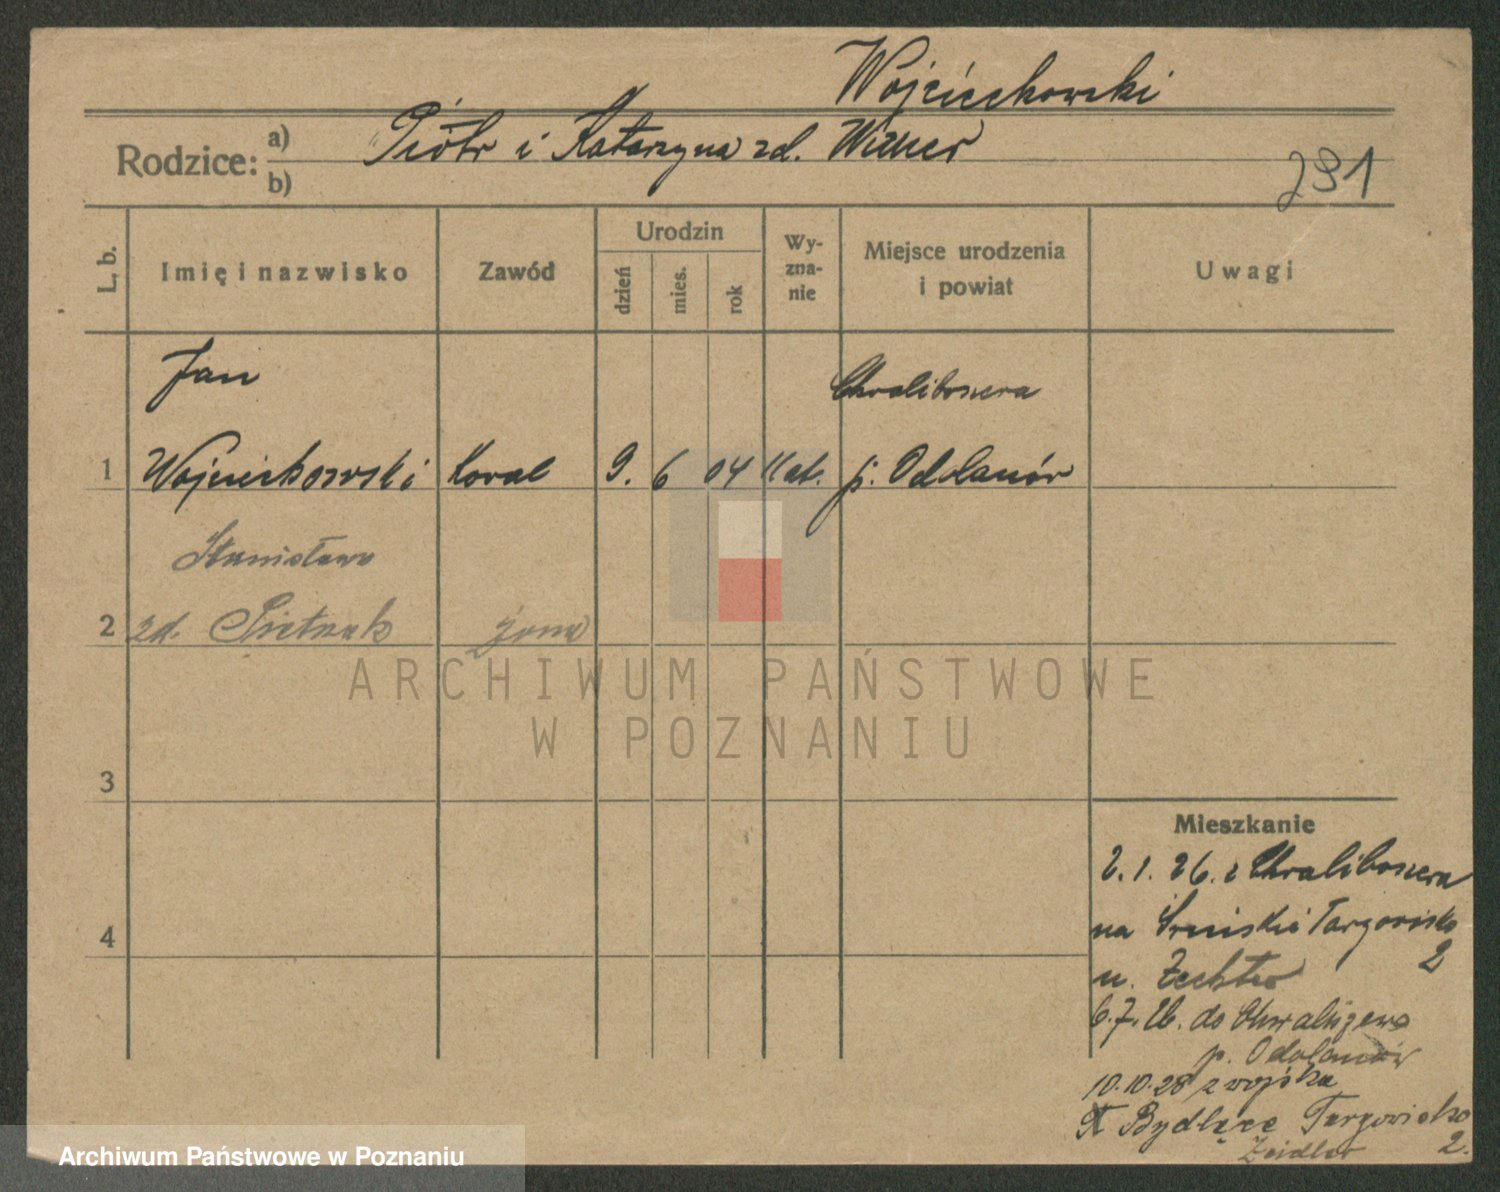 Wojciechowski
Rodzice: a) Piotr i Katarzyna zd.
b)
291
L. b.
Imię i nazwisko
Zawód
Urodzin
dzień
mies.
rok
Wy-
zna-
nie
Miejsce urodzenia
i powiat
Uwagi
Jan
1 Wojciechowski Koval 9. 6 04 Kat. p. Odolanów
Stanisława
2 zd. Pietrzak żona
3
4
Mieszkanie
2. 1. 26. z
na Targowisko
2
u.
6. 7. 26. do
p. Odolanów
10.10.28 z wojska
Bydlęce Targowisko
Zeidler 2.
ARCHIWUM PAŃSTWOWE
W POZNANIU
Archiwum Państwowe w Poznaniu